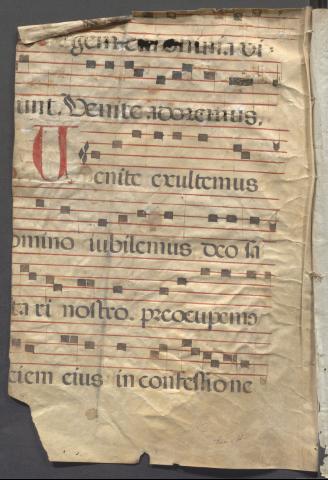 gem cui omnia vi
unt. Venite adoremus.
Venite exultemus
omino iubilemus deo sa
ta ri nostro. preocupemꝰ
ciem eius in confessione